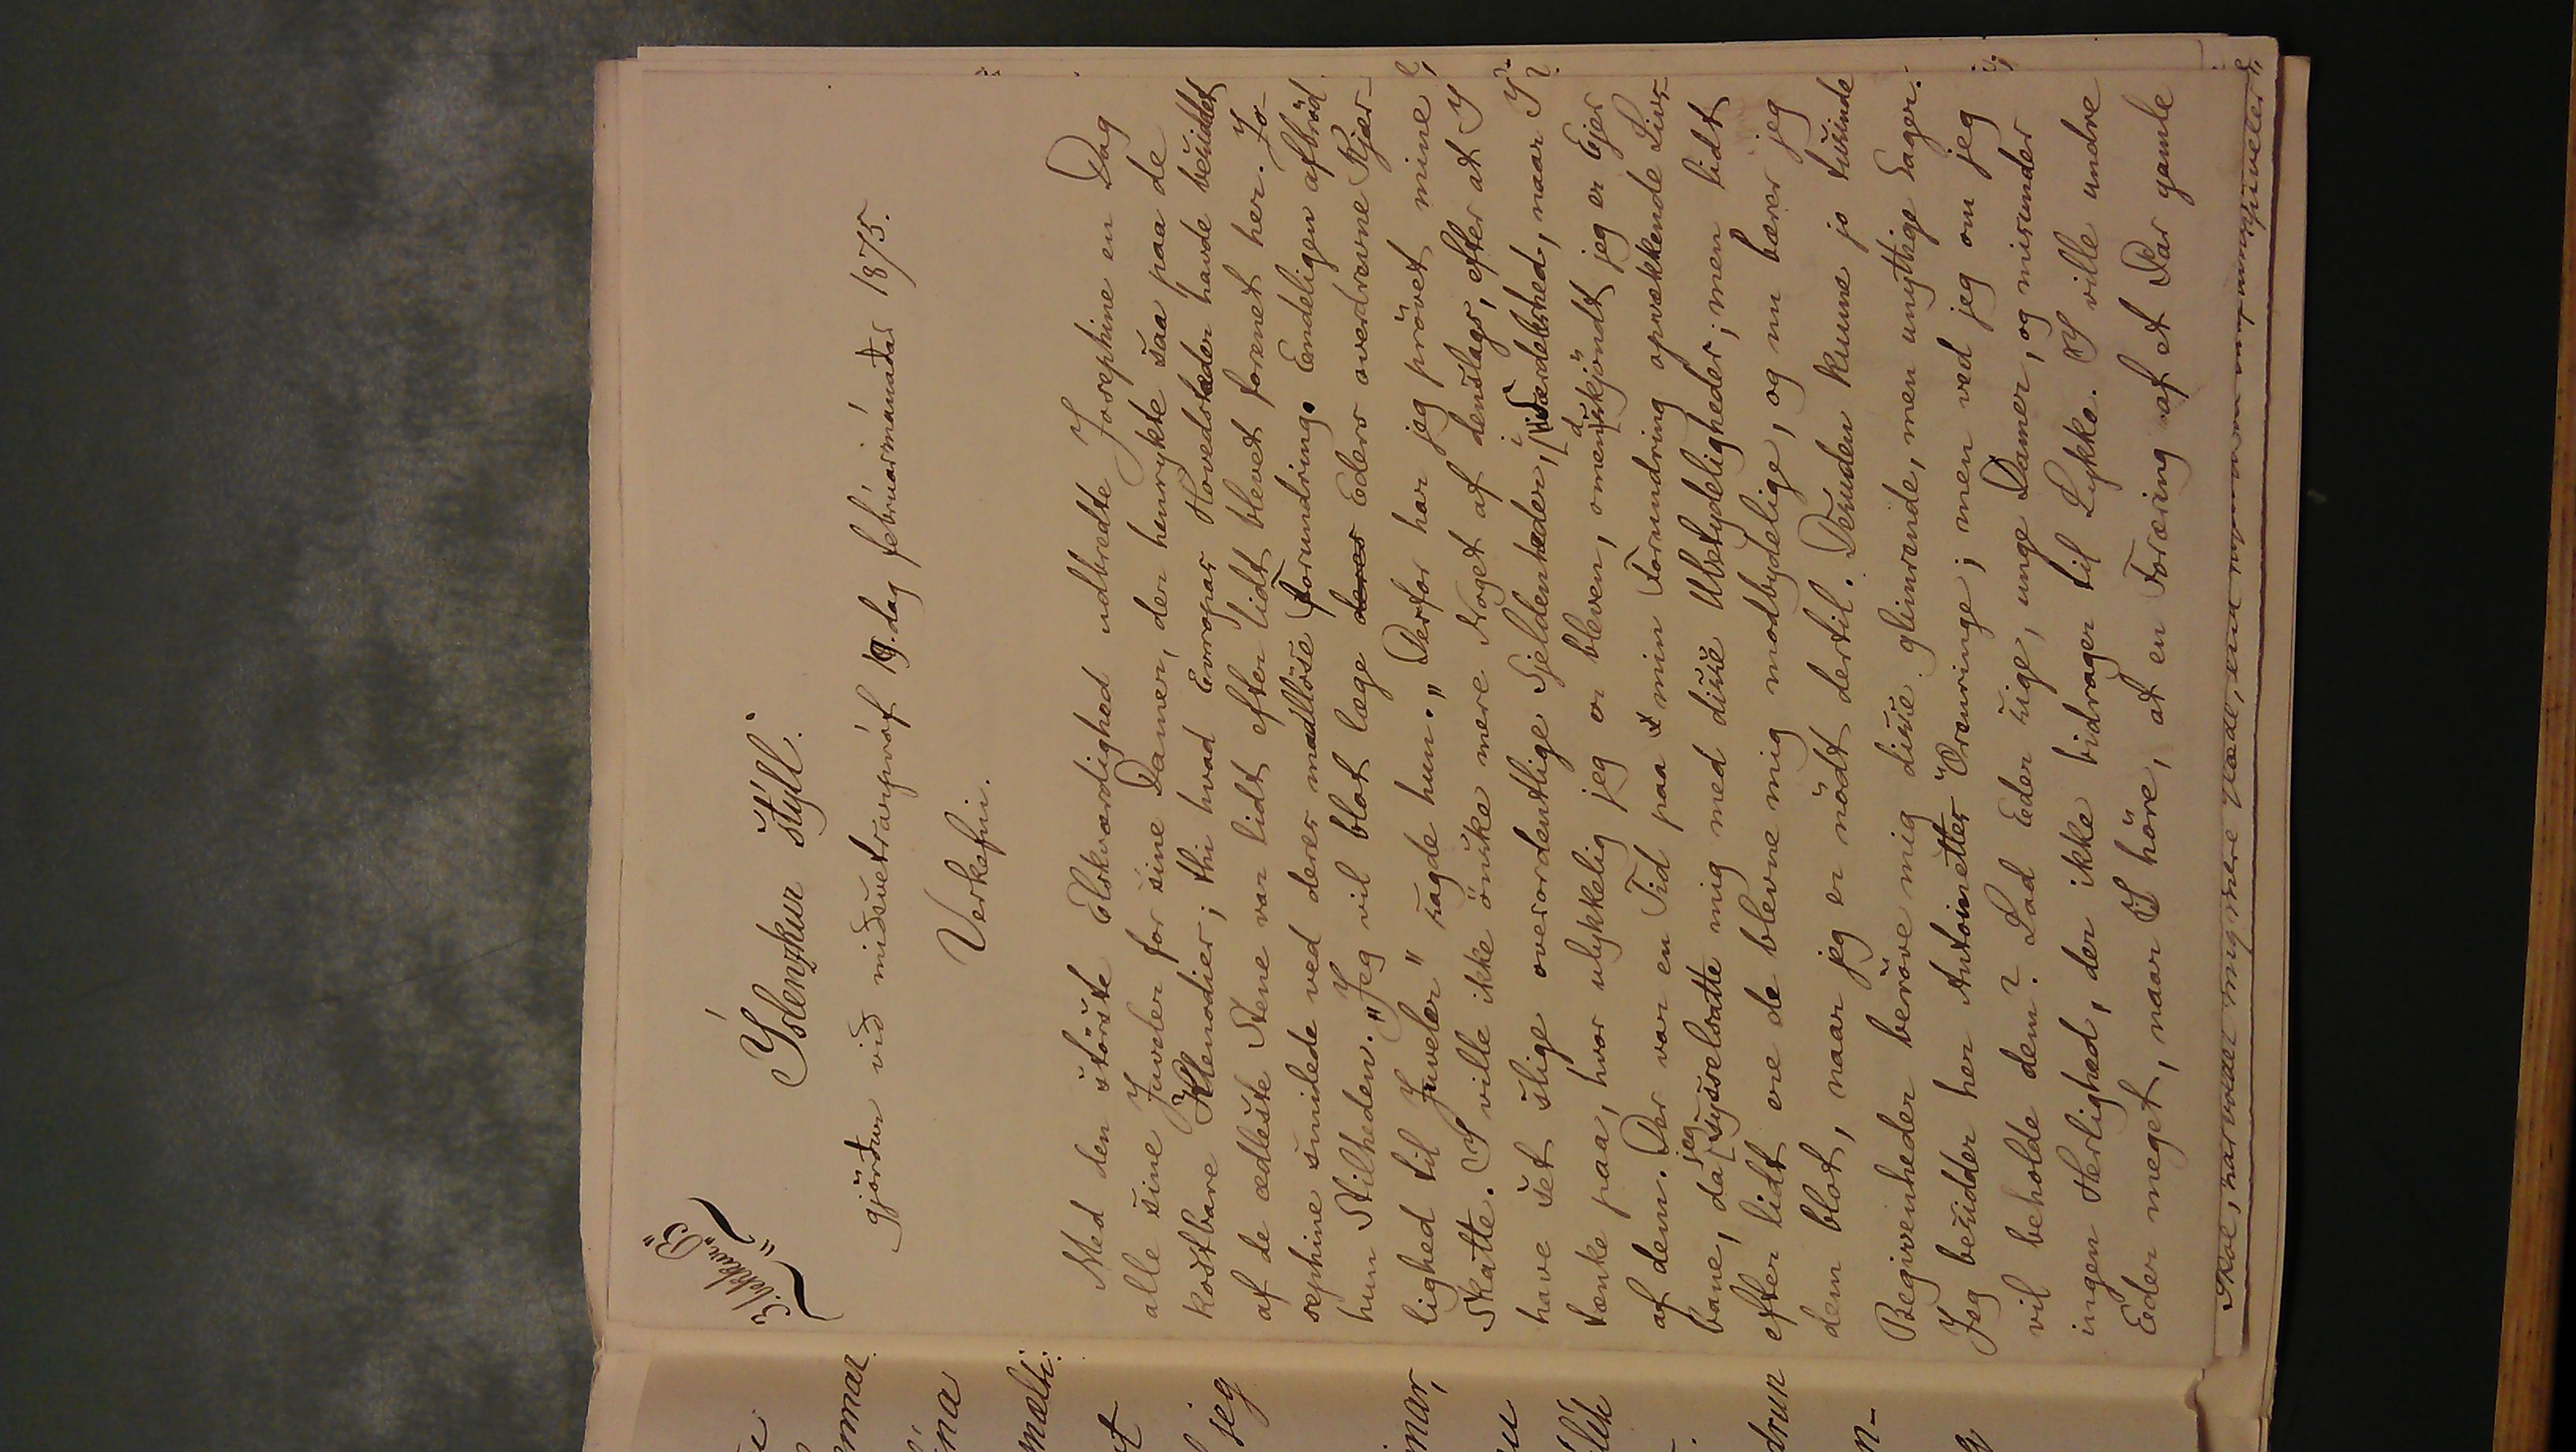 3. bekkur „B"
Íslenzkur stýll.
gjörður við miðsvetrarpróf 19. dag febrúarmánaðar 1875.
Verkefni.
Med den störste Elskværdighed udbredte Josephine en Dag
alle sine Juveler for sine Damer, der henrykte saa paa de
kostbare Klenodier; thi hvad Evropas Hovedstæder havde besiddet
af de ædleste Stene var lidt efter lidt blevet forenet her. Jo-
sephine smilede ved deres maallöse Forundring. Eendeligen afbröd
hun Stilheden. „Jeg vil blot læge deres Eders overdrevne Kjær-
lighed til Juveler" sagde hun. „Derfor har jeg prövet mine
Skatte. I ville ikke önske mere Noget af denslags, efter at I
have set slige overordentlige Sjeldenheder, i Særdeleshed, naar I
tænke paa, hvor ulykkelig jeg er bleven, omendskjöndt jeg er Ejer
af dem. Der var en Tid paa min Forundring opvækkende Livs-
bane, da jeg sysselsatte mig med disse Ubetydeligheder; men lidt
efter lidt ere de blevne mig modbydelige, og nu bærer jeg
dem blot, naar jeg er nödt dertil. Desuden kunne jo tusinde
Begivenheder beröve mig disse glimrende, men unyttige Sager.
Jeg besidder her Antoinettes Öreninge; men ved jeg om jeg
vil beholde dem? Lad Eder sige, unge Damer, og misunder
ingen Herlighed, der ikke bidrager til Lykke. I ville undre
Eder meget, naar I höre, at en Foræring af et Par gamle
Skoe, har voldet mig mere Glæde, end
Juveler
emar
ína
mælti:
t
jeg
mar,
u
drun
n-